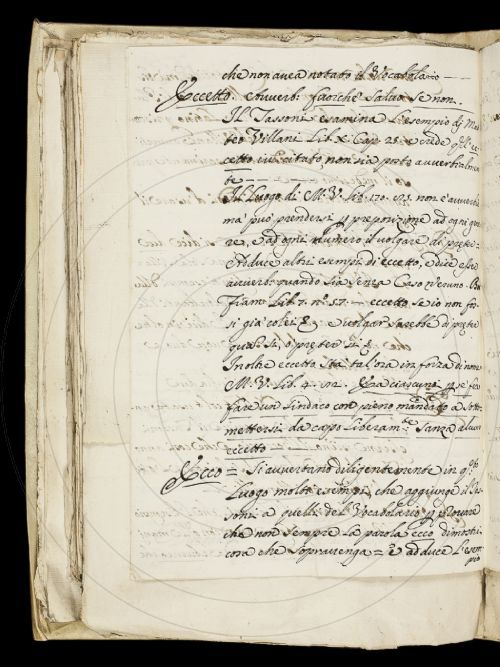 che non avea notato il Vocabolario - - -
Eccetto. Avverb: fuorchè Salvo, Se non.
Il Tassoni esamina l'esempio di Mat
teo Villani Lib. X. Cap. 25. e crede
cetto ivi citato non sia posto avverbialmen
te - - - -
Il Luogo di M. V. Lib. non è avverbi
mà può prendersi preposizione ad ogni gene
re, e ad ogni numero il volgare di preter=
Adduce altri esempi di eccetto, e dice esse
avverb: quando sia senza Caso veruno.
Fiam: Lib. 7. n.º 57. — eccetto se io non fos
si già colei &c. e volgar sarebbe di preter
quasi, o preter si &c.
Inoltre eccetto stà tal'ora in forza di nome
M. V. Lib. 4. Era ciascuno se fes
fare un Sindaco con pieno mandato a Sotto
mettersi da capo Liberam.te Sanza alcuno
eccetto -
Ecco = Si avvertano diligentemente in q.to
Luogo molti esempi, che aggiunge il Tas
soni a quelli del Vocabolario p provare
che non sempre la parola ecco dimostri
cosa che sopravenga = e adduce l'esem
pio